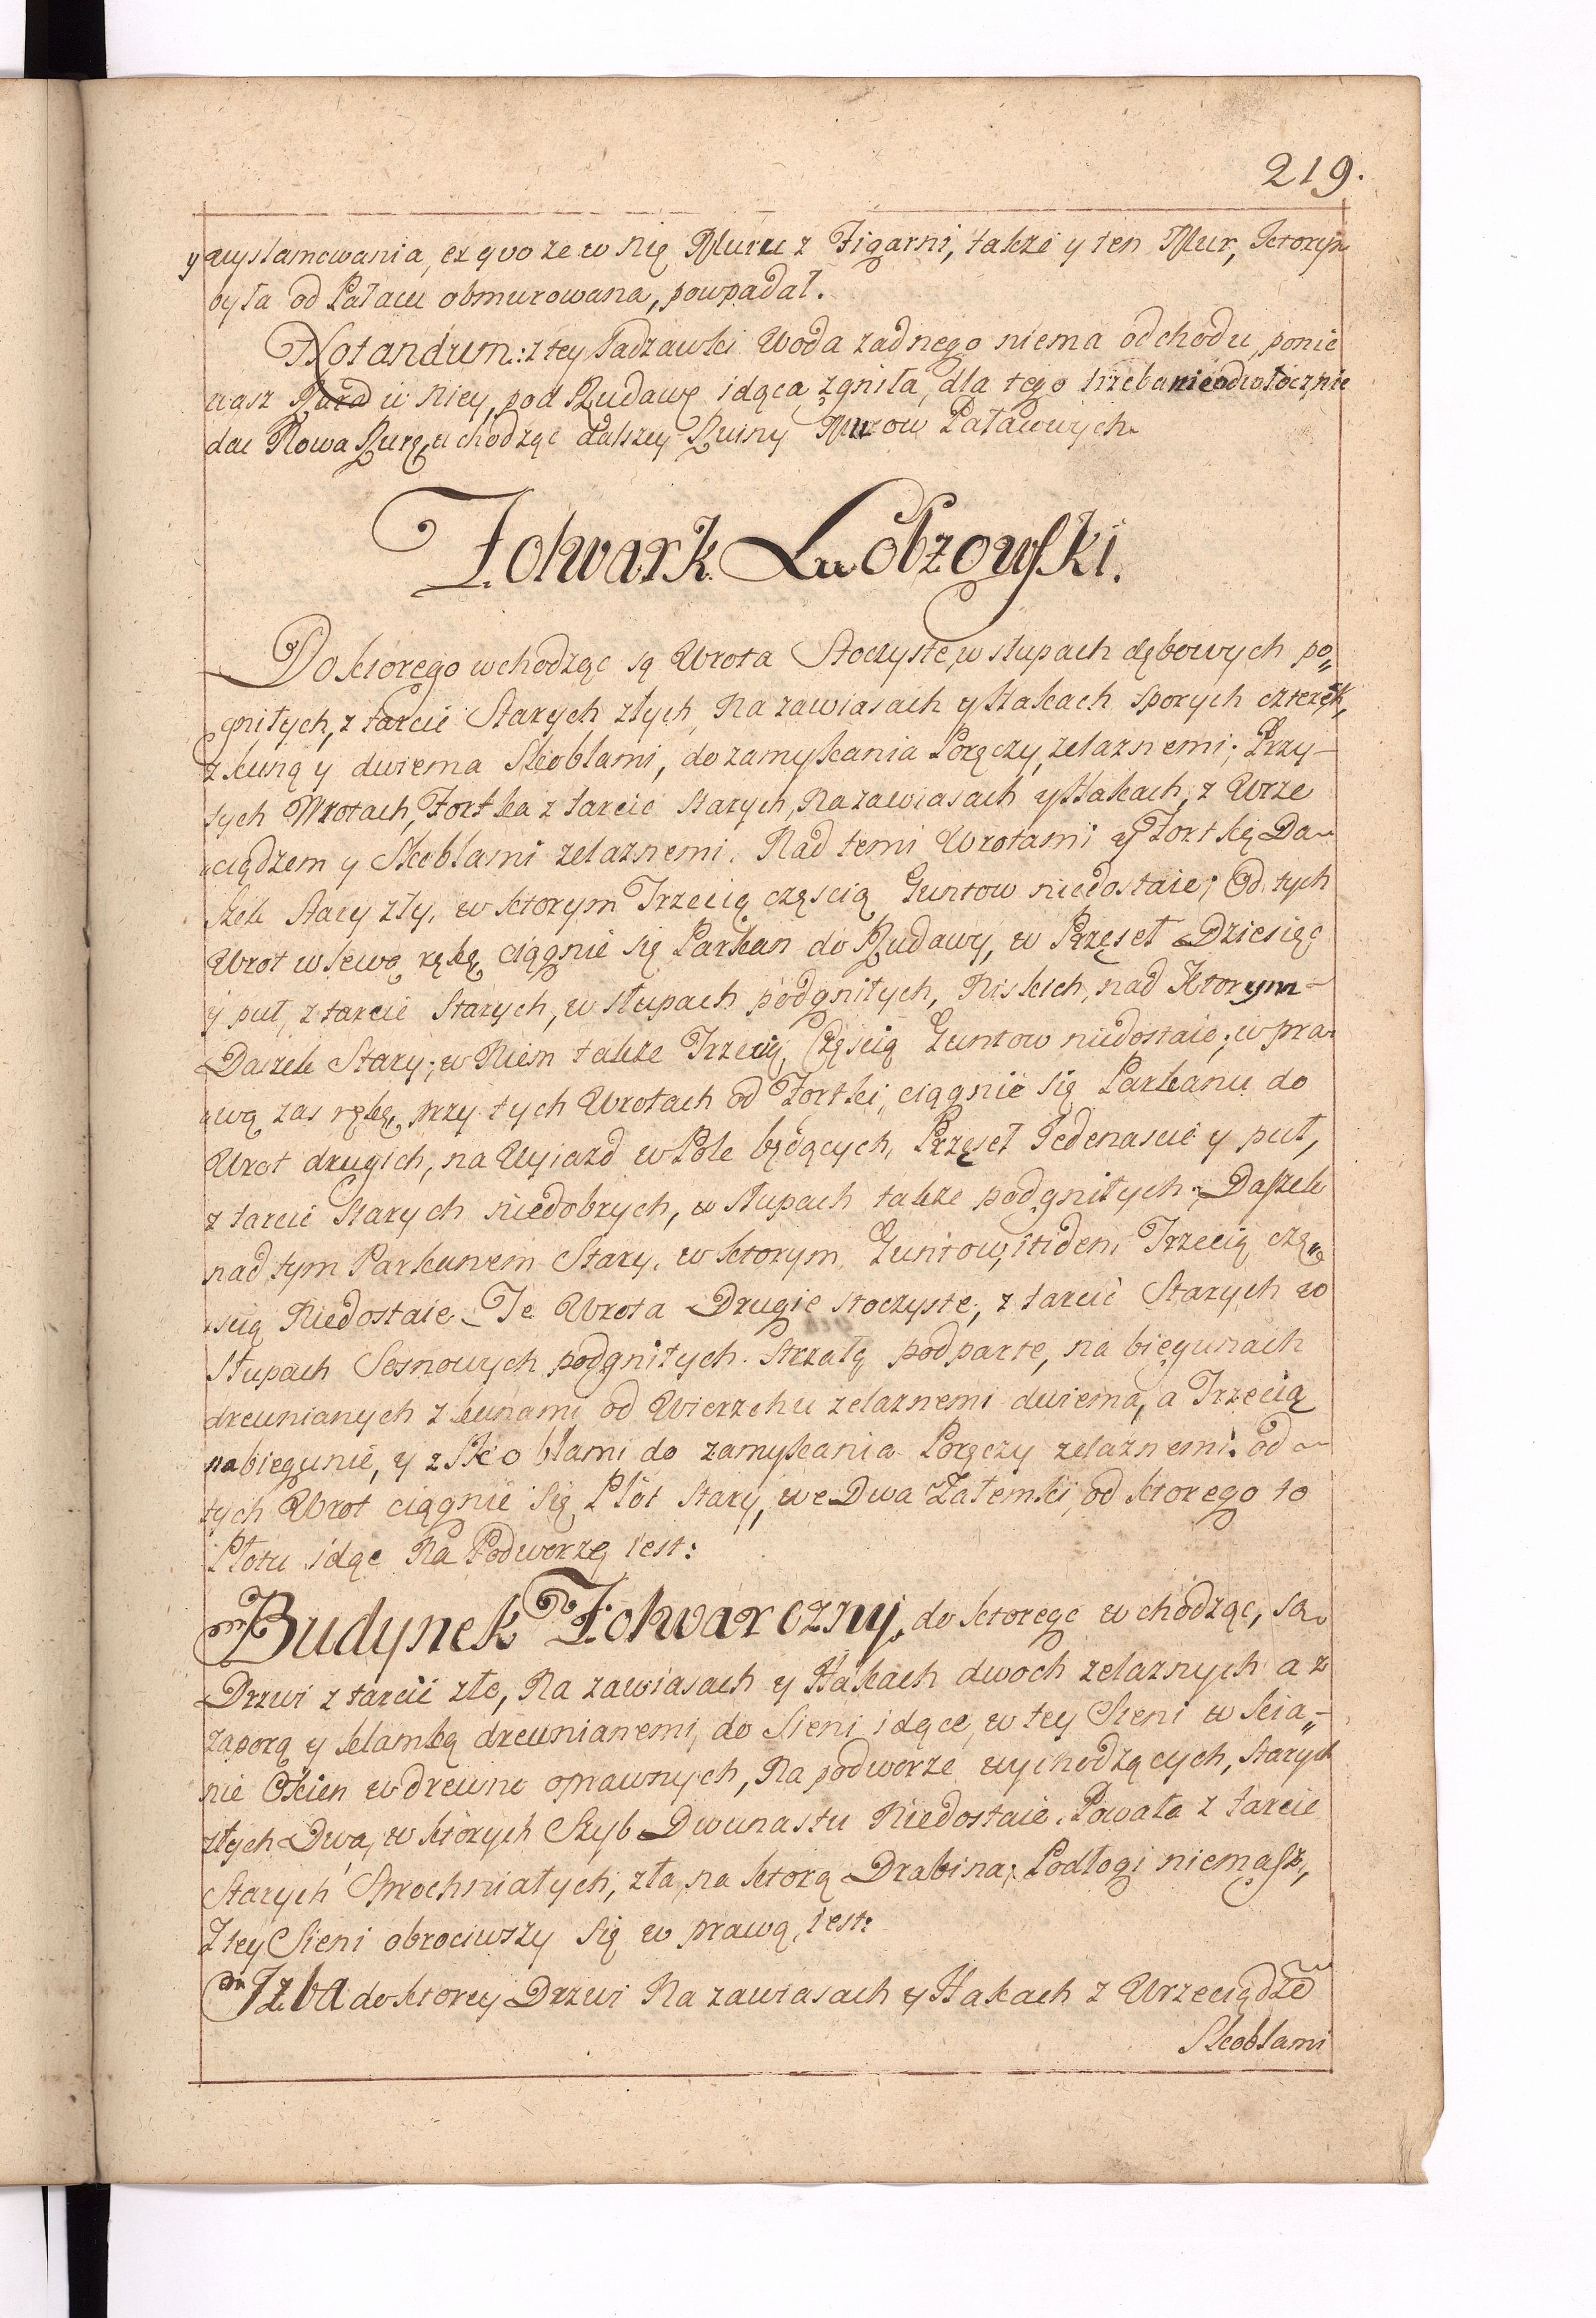 219.
y wystamowania, ex quo ze w nię Muru z Figarni, także y ten Mur, ktorym
była od Pałacu obmurowana, powpadał.
Notandum: z tey Sadzawki Woda zadnego niema odchodu, ponie
wasz Rura u Niey, pod Rudawę idąca zgniła, dla tego trzeba nieodwłocznie
dac Nowa Rurę, uchodząc dalszey Ruiny Murow Pałacowych.
Folwark Łobzowski.
Do ktorego wchodząc są Wrota Stoczyste, w słupach dębowych po„
gniłych, z tarcic Starych złych, Na zawiasach y Hakach sporych czterech,
z kuną y dwiema Skoblami, do zamykania Poręczy, zelaznemi; Przy-
tych Wrotach, Fortka z tarcic starych, Na zawiasach y Hakach, z Wrze
ciądzem y Skoblami zelaznemi. Nad temi Wrotami y Fortką Da-
szek stary zły, w ktorym Trzecią częscią Guntow niedostaie; Od tych
Wrot w lewą rękę ciągnie się Parkan do Rudawy, w Przęseł Dziesięć
y puł, z tarcic Starych, w słupach podgniłych, Niskich, nad ktorym-
Daszek Stary; w Niem także Trzecią Częscią Guntow niedostaie; w pra-
wą zas rękę, przy tych Wrotach od Fortki, ciągnie się Parkanu do
Wrot drugich, na Wyiazd w Pole będących, Przęseł Jedenascie y puł,
z tarcic Starych niedobrych, w słupach także podgniłych. Daszek
nad tym Parkanem Stary, w ktorym Guntow, itidem Trzecią czę„
scią Niedostaie. Te Wrota Drugie stoczyste, z tarcic Starych w
słupach Sosnowych podgniłych. Strzałą podparte, na biegunach
drewnianych z kunami od Wierzchu zelaznemi dwiema, a Trzecią
na biegunie, y z Skoblami do zamykania Poręczy zelaznemi. od
tych Wrot ciągnie się Płot stary, we Dwa Załemki, od ktorego to
Płotu idąc Na Podworzę iest:
Budynek Folwarczny, do ktorego wchodząc, są
Drzwi z tarcic złe, Na zawiasach y Hakach dwoch zelaznych a z
zaporą y klamką drewnianemi, do Sieni idące, w tey Sieni w scia„
nie Okien w drewno oprawnych, Na podworze wychodzących, starych
złych Dwa, w ktorych Szyb Dwunastu Niedostaie. Powała z tarcic
Starych Sprochniałych, zła, na ktorą Drabina; Podłogi niemasz,
Z tey Sieni obrociwszy się w prawą, iest:
Izba do ktorey Drzwi Na zawiasach y Hakach z Wrzeciądzē
Skoblami